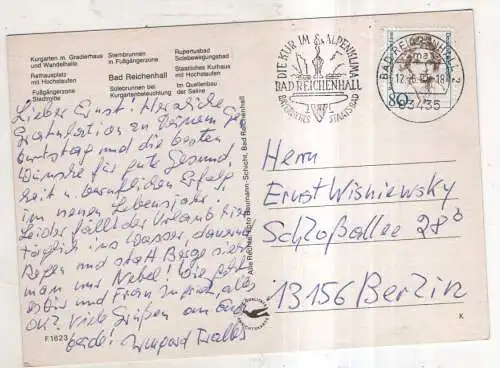 Kurgarten m. Gradierhaus
und Wandelhalle
Rathausplatz
mit Hochstaufen
Fußgängerzone
Stadtmitte
Sternbrunnen
in Fußgängerzone
Bad Reichenhall
Solebrunnen bei
Kurgartenbeleuchtung
Rupertusbad
Solebewegungsbad
Staatliches Kurhaus
mit Hochstaufen
Im Quellenbau
der Saline
Lieber Ernst! Herzliche
Gratulation zu Deinem Ge-
burtstag und die besten
Wünsche für gute Gesund-
heit u. beruflichen Erfolg
im neuen Lebensjahr.
Leider fällt der Urlaub hier
ins Wasser, dauernd
Regen und statt Berge sieht
man nur Nebel! Wie geht
es Dir und Frau alles
ok? Viele Grüße von Euch
beide!
F 1623
Alle Rechte Foto Baumann-Schicht, Bad Reichenhall
DIE KUR IM ALPENKLIMA
BAD REICHENHALL
BAYERISCHES STAATSBAD
BAD REICHENHALL
80
83435
Herrn
Ernst Wisniewsky
Schloßallee 28b
13156 Berlin
K